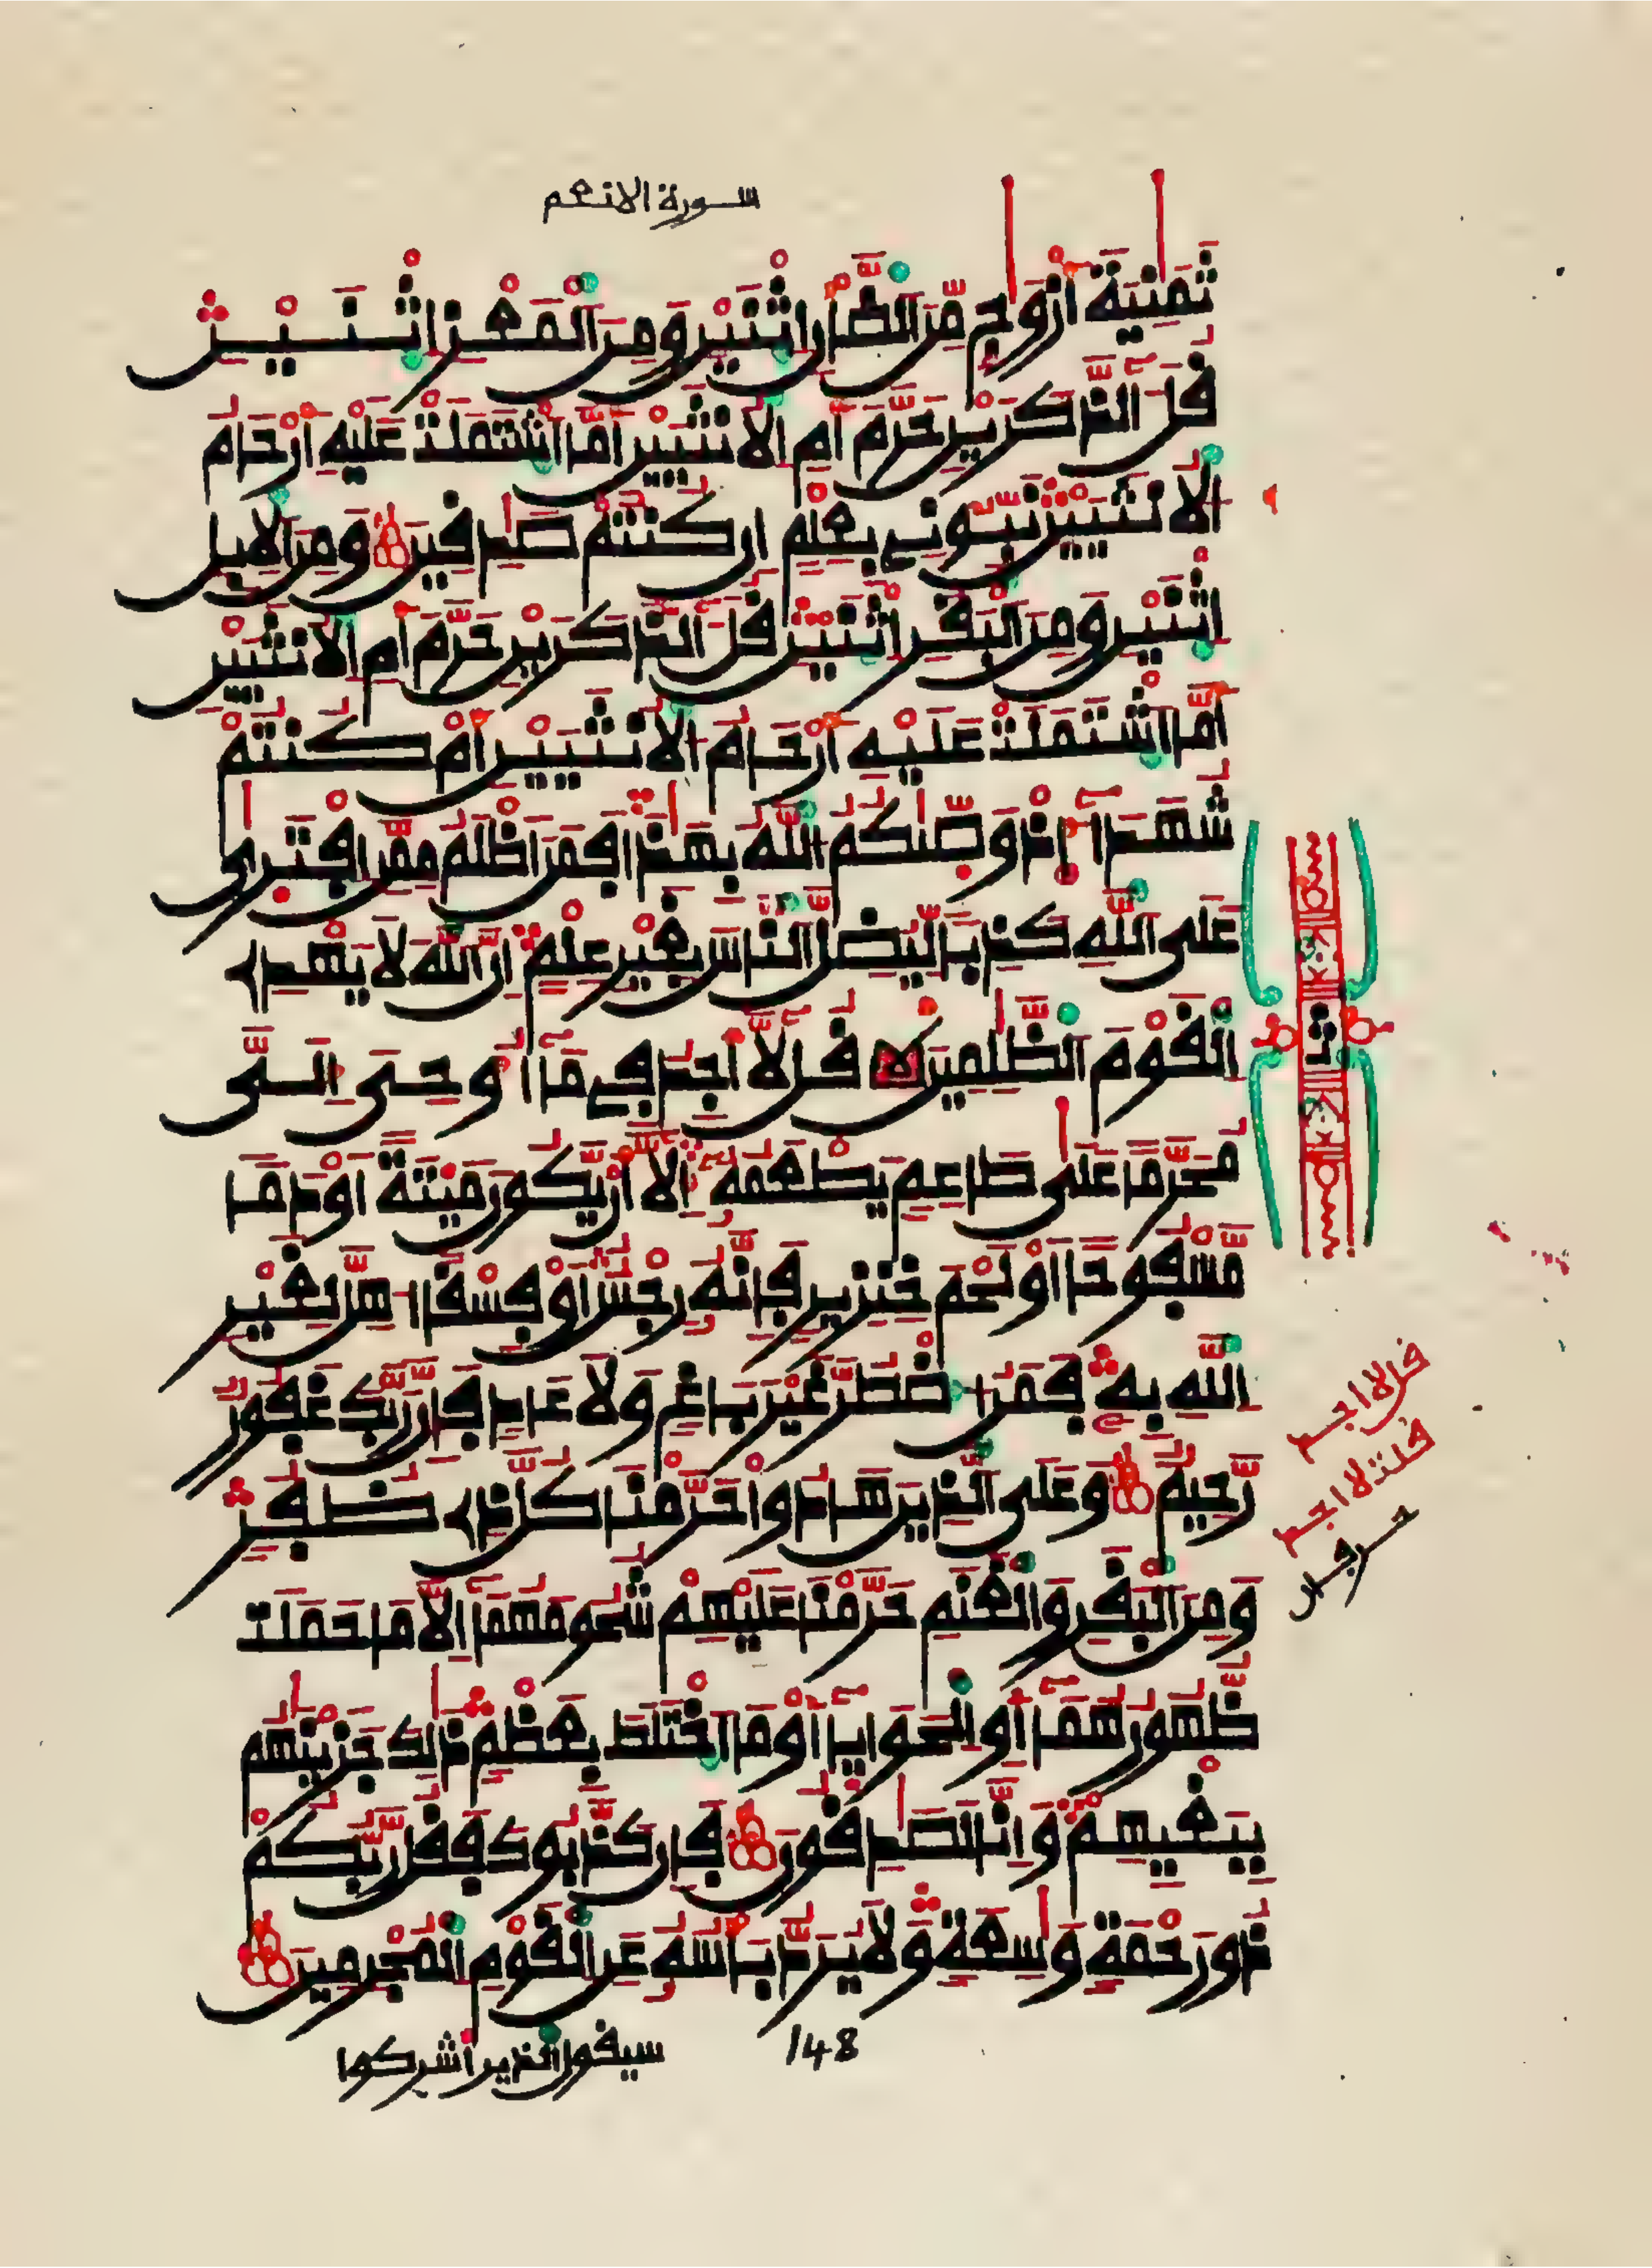 سورة الانعم
ثَمَٰنِيَةَ أَزْوَٰجٍ مِّنَ ٱلضَّأْنِ ٱثْنَيْنِ وَمِنَ ٱلْمَعْزِ ٱثْنَيْنِ
قُلْ ءَآلذَّكَرَيْنِ حَرَّمَ أَمِ ٱلْأُنثَيَيْنِ أَمَّا ٱشْتَمَلَتْ عَلَيْهِ أَرْحَامُ
ٱلْأُنثَيَيْنِ نَبِّـُٔونِے بِعِلْمٍ إِن كُنتُمْ صَٰدِقِينَ وَمِنَ ٱلْإِبِلِ
ٱثْنَيْنِ وَمِنَ ٱلْبَقَرِ ٱثْنَيْنِ قُلْ ءَآلذَّكَرَيْنِ حَرَّمَ أَمِ ٱلْأُنثَيَيْنِ
أَمَّا ٱشْتَمَلَتْ عَلَيْهِ أَرْحَامُ ٱلْأُنثَيَيْنِ أَمْ كُنتُمْ
شُهَدَآءَ إِذْ وَصَّىٰكُمُ ٱللَّهُ بِهَٰذَا فَمَنْ أَظْلَمُ مِمَّنِ ٱفْتَرَىٰ
عَلَى ٱللَّهِ كَذِبًا لِّيُضِلَّ ٱلنَّاسَ بِغَيْرِ عِلْمٍ إِنَّ ٱللَّهَ لَا يَهْدِے
ٱلْقَوْمَ ٱلظَّٰلِمِينَ قُل لَّآ أَجِدُ فِے مَآ أُوحِىَ إِلَىَّ
مُحَرَّمًا عَلَىٰ طَاعِمٍ يَطْعَمُهُۥٓ إِلَّآ أَنْ يَّكُونَ مَيْتَةً أَوْ دَمًا
مَّسْفُوحًا أَوْ لَحْمَ خِنزِيرٍ فَإِنَّهُۥ رِجْسٌ أَوْ فِسْقًا أُهِلَّ لِغَيْرِ
ٱللَّهِ بِهِۦ فَمَنُ ٱضْطُرَّ غَيْرَ بَاغٍ وَلَا عَادٍ فَإِنَّ رَبَّكَ غَفُورٌ
رَّحِيمٌ وَعَلَى ٱلذِينَ هَادُوا حَرَّمْنَا كُلَّ ذِے ظُفُرٍ
وَمِنَ ٱلْبَقَرِ وَٱلْغَنَمِ حَرَّمْنَا عَلَيْهِمْ شُحُومَهُمَآ إِلَّا مَا حَمَلَتْ
ظُهُورُهُمَآ أَوِ ٱلْحَوَايَآ أَوْ مَا ٱخْتَلَطَ بِعَظْمٍ ذَٰلِكَ جَزَيْنَٰهُم
بِبَغْيِهِمْ وَإِنَّا لَصَٰدِقُونَ فَإِن كَذَّبُوكَ فَقُل رَّبُّكُمْ
ذُو رَحْمَةٍ وَٰسِعَةٍ وَلَا يُرَدُّ بَأْسُهُۥ عَنِ ٱلْقَوْمِ ٱلْمُجْرِمِينَ
سيقول الذين أشركوا
148
ثمن
قل لا اجد
قلت لا اجد
حرفان